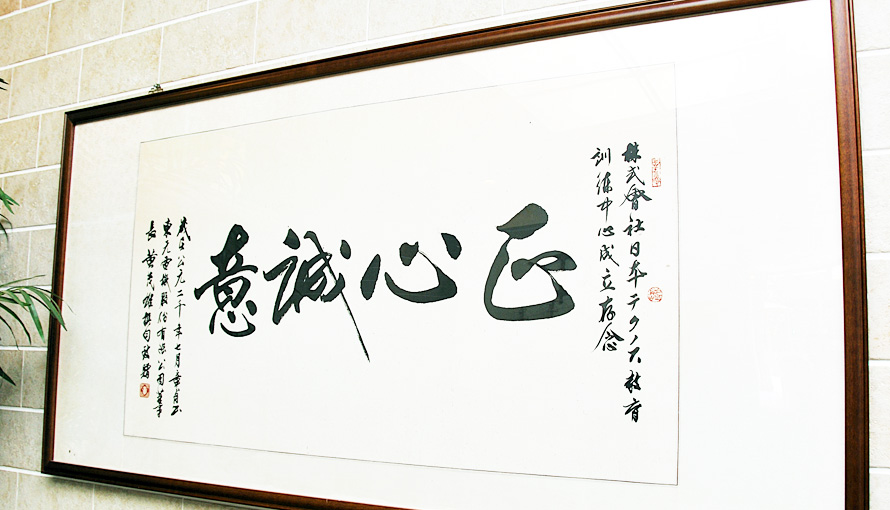 株式會社日本テクノス教育
訓練中心成立存念
正心誠意
歲在公元二千年七月
東元電機股份有限公司董事
長黃茂雄